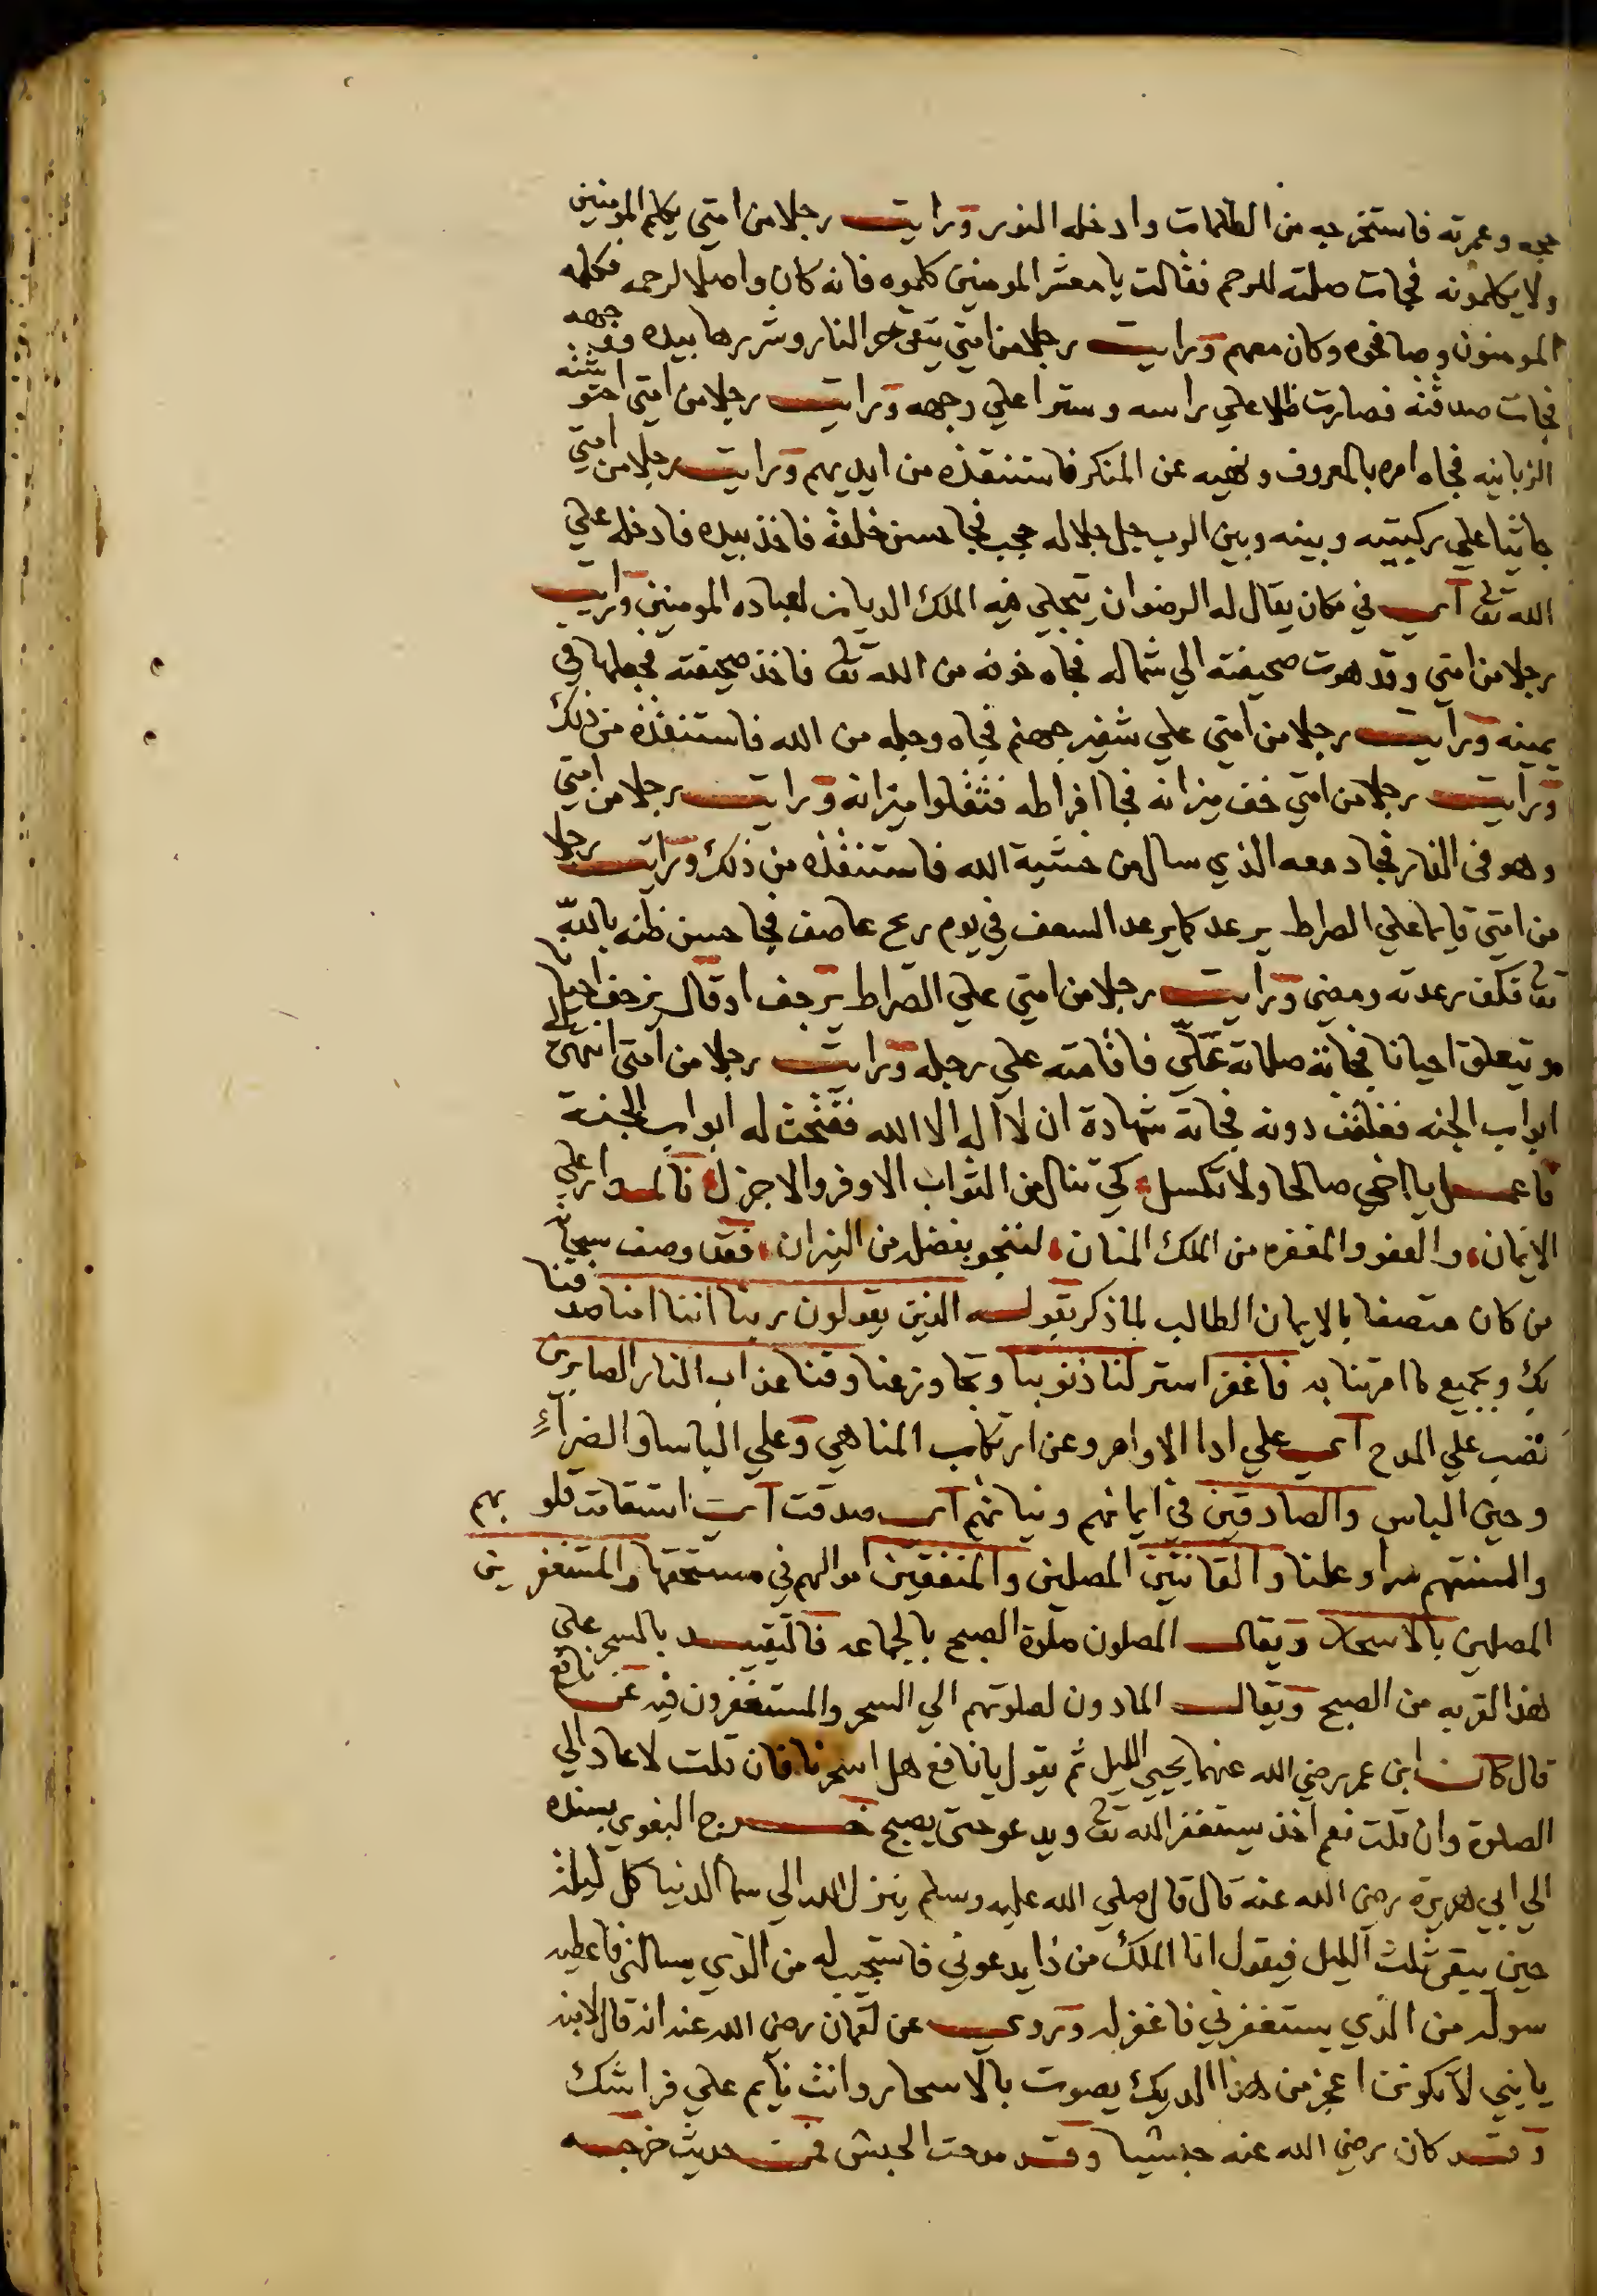 حجه وعمرته فاستخرجه من الظلمات وادخله النور ورايت رجلا من امتي يكلم المومنين
ولا يكلمونه فجات صلته للرحم فقالت يا معشر المومنين كلموه فانه كان واصلا لرحمه فكلمه
المومنون وصافحوه وكان معهم ورايت رجلا من امتي يتقي حر النار وشررها بيده ووجهه
فجات صدقته فصارت ظلا علي راسه وسترا علي وجهه ورايت رجلا من امتي احتوشته
الزبانيه فجاه امره بالمعروف ونهيه عن المنكر فاستنقذه من ايديهم ورايت رجلا من امتي
جاثيا علي ركبتيه وبينه وبين الرب جل جلاله حجب فجا حسن خلقه فاخذ بيده فادخله علي
الله تعا اي في مكان يقال له الرضوان يتجلي فيه الملك الديان لعباده المومنين ورايت
رجلا من امتي وقد هوت صحيفته الي شماله فجاه خوفه من الله تعا فاخذ صحيفته فجعلها في
يمينه ورايت رجلا من امتي علي شفير جهنم فجاه وجله من الله فاستنقذه من ذلك
ورايت رجلا من امتي خف ميزانه فجا افراطه فثقلوا ميزانه ورايت رجلا من امتي
وهو في النار فجا دمعه الذي سال من خشية الله فاستنقذه من ذلك ورايت رجلا
من امتي قايما علي الصراط يرعد كما يرعد السعف في يوم ريح عاصف فجا حسن ظنه بالله
تعا فكف رعدته ومضي ورايت رجلا من امتي علي الصراط يرجف او قال يزحف احيانا
ويتعلق احيانا فجاته صلاته عليّ فاقامته علي رجله ورايت رجلا من امتي انتهي الي
ابواب الجنه فغلقت دونه فجاته شهادة ان لا اله الا الله ففتحت له ابواب الجنة
فاعمل يا اخي صالحا ولا تكسل كي تنال من الثواب الاوفر والاجزل فالمدار علي
الايمان والعفو والمغفره من الملك المنان لننجو بفضله من النيران فقد وصف سبحانه
من كان متصفا بالايمان الطالب لما ذكر بقوله الذين يقولون ربنا اننا امنا صدقنا
بك وبجميع ما امرتنا به فاغفر استر لنا ذنوبنا وتجاوز عنا وقنا عذاب النار الصابرين
نصب علي المدح اي علي ادا الاوامر وعن ارتكاب المناهي وعلي الباسا والضرآء
وحين الباس والصادقين في ايمانهم ونياتهم اي صدقت اي استقامت قلوبهم
والسنتهم سرا وعلنا والقانتين المصلين والمنفقين اموالهم في مستحقها والمستغفرين
المصلين بالاسحار ويقال المصلون صلوة الصبح بالجماعه فالتقييد بالسحر علي
هذا لقربه من الصبح ويقال المادون لصلوتهم الي السحر والمستغفرون فيه عن نافع
قال كان ابن عمر رضي الله عنهما يحيي الليل ثم يقول يا نافع هل اسحرنا فان قلت لا عاد الي
الصلوة وان قلت نعم اخذ يستغفر الله تعا ويدعو حتي يصبح خرج البغوي بسنده
الي ابي هريرة رضي الله عنه قال قال صلي الله عليه وسلم ينزل الله الي سما الدنيا كل ليلة
حين يبقي ثلث الليل فيقول انا الملك من ذا يدعوني فاستجيب له من الذي يسالني فاعطيه
سوله من الذي يستغفرني فاغفر له وروي عن لقمان رضي الله عنه انه قال لابنه
يا بني لا تكونن اعجز من هذا الديك يصوت بالاسحار وانت نايم علي فراشك
وقد كان رضي الله عنه حبشيا وقد مدحت الحبش في حديث خرجه